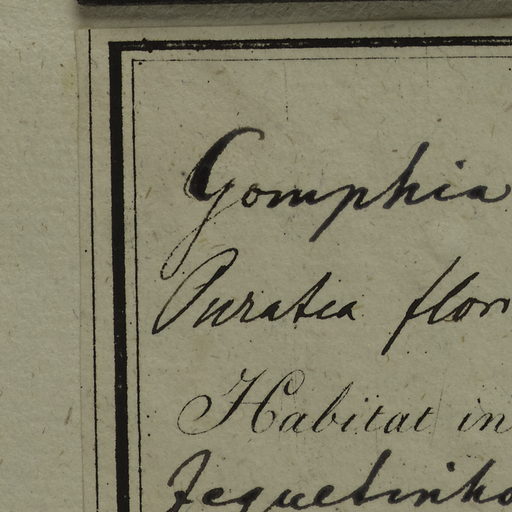 Gomphia
Ouratea flor
Habitat in
Jequetinho